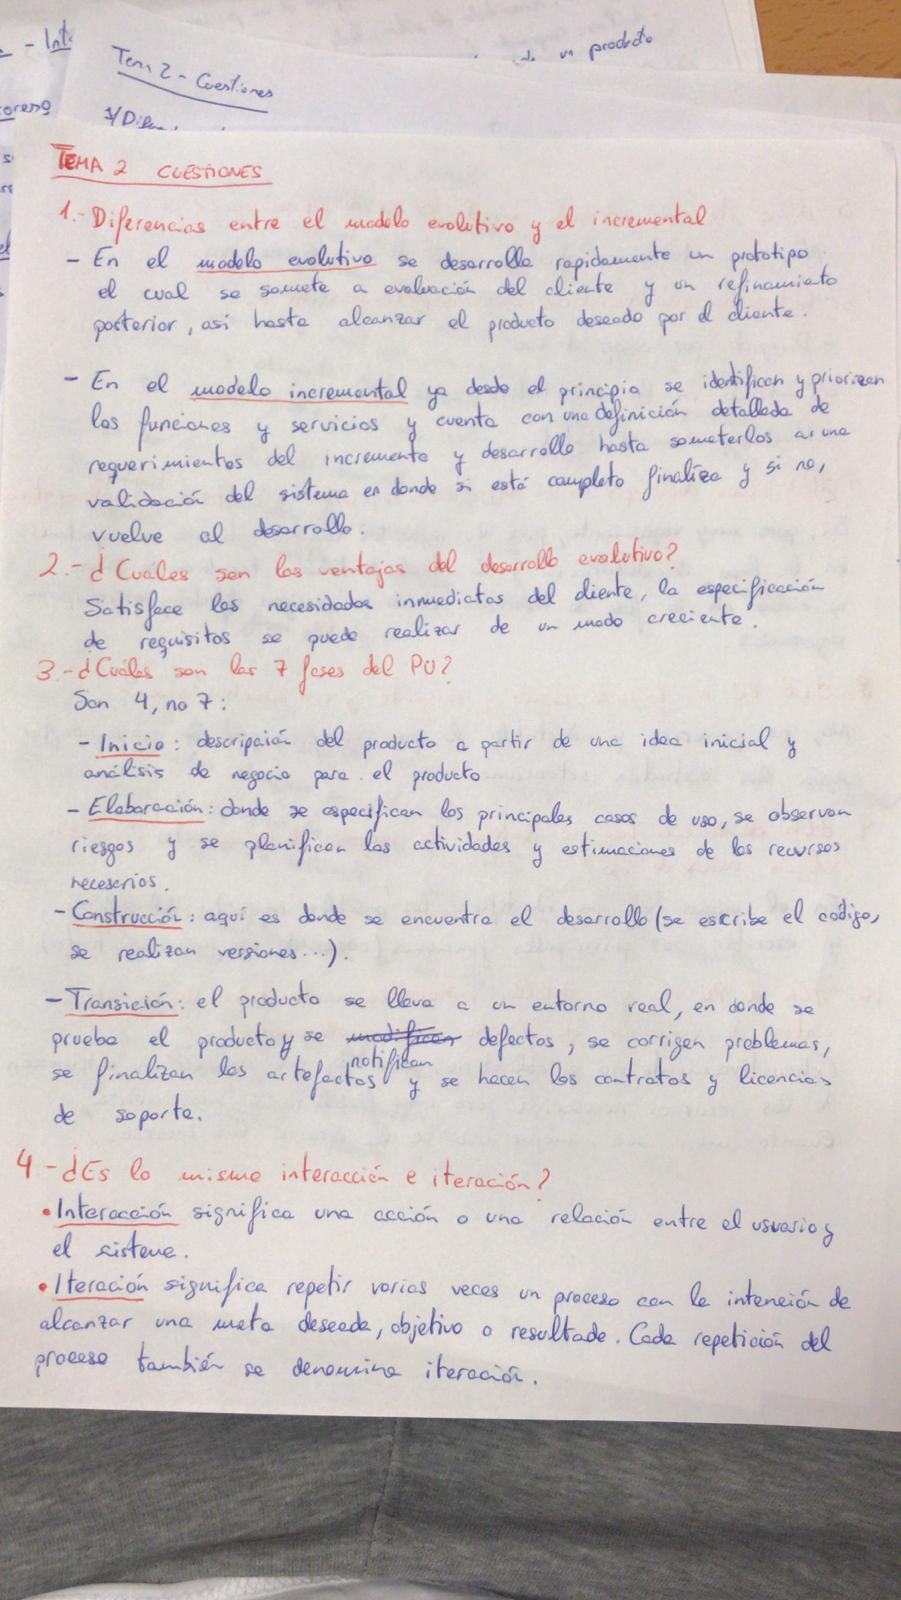 - Int
un producto
Tema 2 - Cuestiones
TEMA 2 CUESTIONES
1.- Diferencias entre el modelo evolutivo y el incremental
- En el modelo evolutivo se desarrolla rapidamente un prototipo
el cual se somete a evaluación del cliente y un refinamiento
posterior, así hasta alcanzar el producto deseado por el cliente.
- En el modelo incremental ya desde el principio se identifican y priorizan
las funciones y servicios y cuenta con una definición detallada de
requerimientos del incremento y desarrollo hasta someterlos a una
validación del sistema en donde si está completo finaliza y si no,
vuelve al desarrollo.
2.- ¿Cuales son las ventajas del desarrollo evolutivo?
Satisface las necesidades inmediatas del cliente, la especificación
de requisitos se puede realizar de un modo creciente.
3.- ¿Cuáles son las 7 fases del PU?
Son 4, no 7:
- Inicio: descripción del producto a partir de una idea inicial y
análisis de negocio para el producto
- Elaboración: donde se especifican los principales casos de uso, se observan
riesgos y se planifican las actividades y estimaciones de los recursos
necesarios.
- Construcción: aquí es donde se encuentra el desarrollo (se escribe el código,
se realizan versiones...).
- Transición: el producto se lleva a un entorno real, en donde se
prueba el producto y se modifican notifican defectos, se corrigen problemas,
se finalizan los artefactos y se hacen los contratos y licencias
de soporte.
4.- ¿Es lo mismo interacción e iteración?
• Interacción significa una acción o una relación entre el usuario y
el sistema.
• Iteración significa repetir varias veces un proceso con la intención de
alcanzar una meta deseada, objetivo o resultado. Cada repetición del
proceso también se denomina iteración.